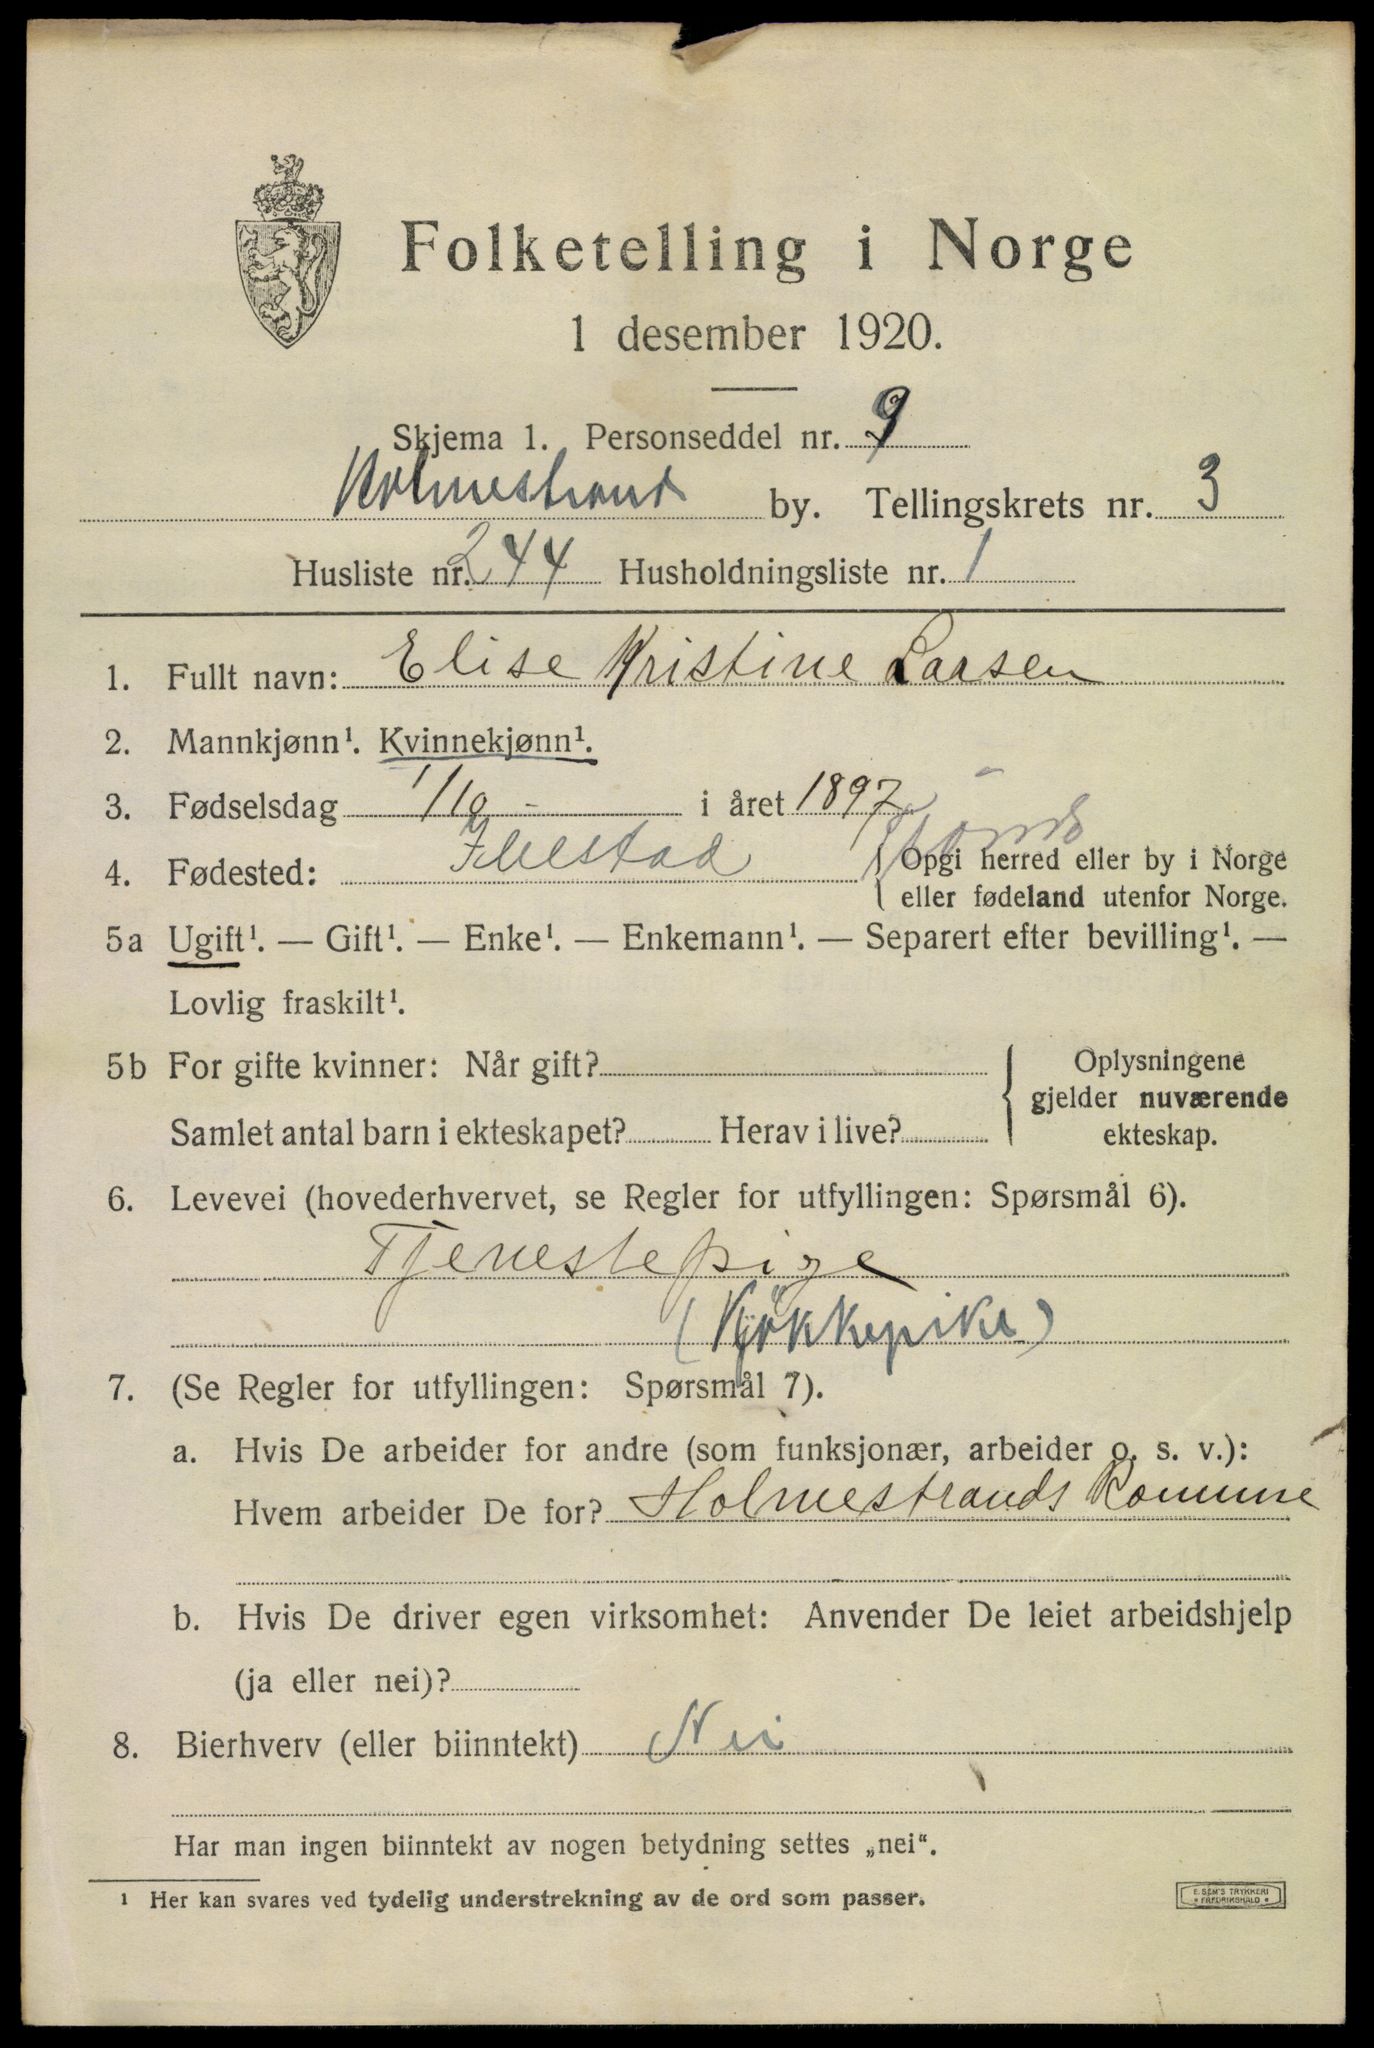 Folketelling i Norge
1 desember 1920.
Skjema 1. Personseddel nr. 9
Holmestrand by. Tellingskrets nr. 3
Husliste nr. 244 Husholdningsliste nr. 1
1. Fullt navn: Elise Kristine Larsen
2. Mannkjønn¹. Kvinnekjønn¹.
3. Fødselsdag 1/10 - i året 1897
4. Fødested: { Opgi herred eller by i Norge
eller fødeland utenfor Norge.
5a Ugift¹. — Gift¹. — Enke¹. — Enkemann¹. — Separert efter bevilling¹. —
Lovlig fraskilt¹.
5b For gifte kvinner: Når gift?
Samlet antal barn i ekteskapet? Herav i live?
{ Oplysningene
gjelder nuværende
ekteskap.
6. Levevei (hovederhvervet, se Regler for utfyllingen: Spørsmål 6).
Tjenestepige
(Kjøkkepike)
7. (Se Regler for utfyllingen: Spørsmål 7).
a. Hvis De arbeider for andre (som funksjonær, arbeider o. s. v.):
Hvem arbeider De for? Holmestrands Komune
b. Hvis De driver egen virksomhet: Anvender De leiet arbeidshjelp
(ja eller nei)?
8. Bierhverv (eller biinntekt) Nei
Har man ingen biinntekt av nogen betydning settes „nei“.
¹ Her kan svares ved tydelig understrekning av de ord som passer.
E. SEM'S TRYKKERI
* FREDRIKSHALD *